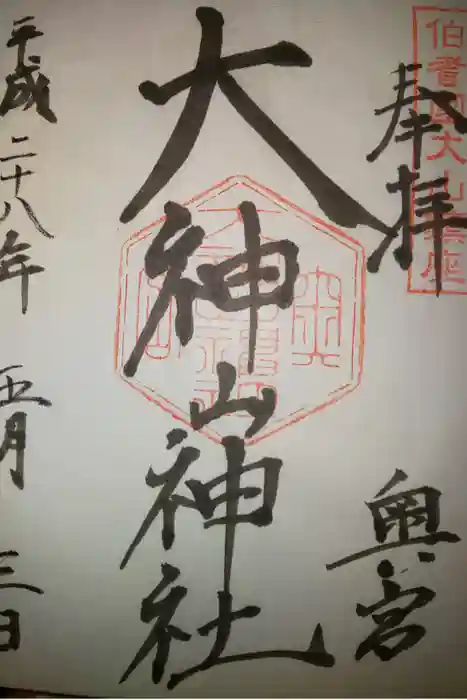 奉拝
奥宮
伯耆國大山鎮座
大神山神社
平成二十八年 五月 三日